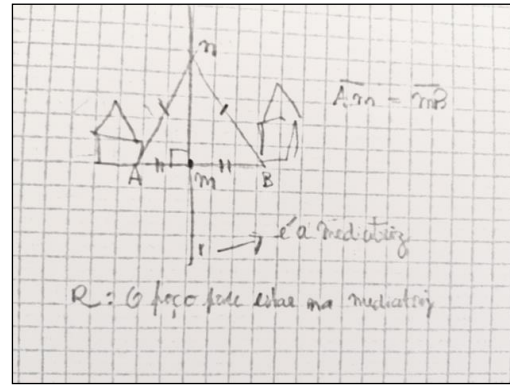 n
Am = mB
A m B
r → é a mediatriz
R: O poço pode estar na mediatriz